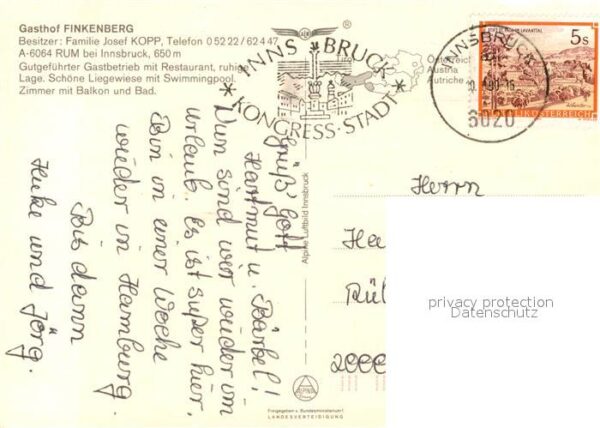 Gasthof FINKENBERG
Besitzer: Familie Josef KOPP, Telefon 0 52 22 / 62 4 47
A-6064 RUM bei Innsbruck, 650 m
Gutgeführter Gastbetrieb mit Restaurant, ruhige
Lage. Schöne Liegewiese mit Swimmingpool.
Zimmer mit Balkon und Bad.
INNSBRUCK
KONGRESS-STADT
Österreich
Austria
Autriche
INNSBRUCK
6020
5s
REPUBLIK ÖSTERREICH
Grüß Gott
Hartmut u. Bärbel!
Nun sind wir wieder im
Urlaub. Es ist super hier.
Bin in einer Woche
wieder in Hamburg.
Bis dann
Heike und Jörg.
Alpine Luftbild Innsbruck
Herrn
2000
privacy protection
Datenschutz
Freigegeben v. Bundesministerium f.
LANDESVERTEIDIGUNG